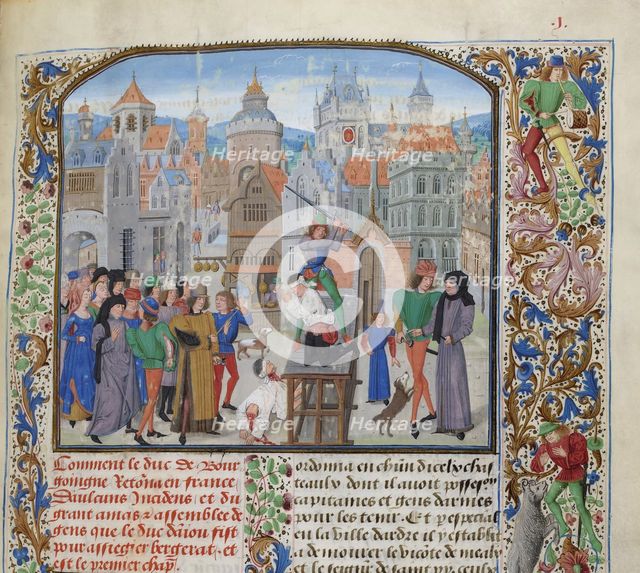 .J.
Heritage
Heritage
Heritage
Heritage
Heritage
Heritage
Comment le duc de Bour
goingne Retorna en france
Daulcuns Inadens et du
grant amas & assemblee de
gens que le duc daiou fist
pour assiegier bergerat, et
est le premier chap̃.
ordonna en chũn dicelx chas
teaulx dont il avoit possession
capitaines et gens darmes
pour les tenir. Et p especial
en la ville dardre il y establit
a demourer le vicõte de meaulx
et le seigneur de